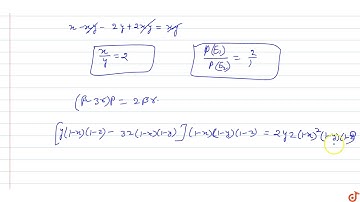 x - xy - 2y + 2xy = xy
x/y = 2    P(E₁)/P(E₃) = 2/1
(β-3γ)p = 2βγ.
[y(1-x)(1-z) - 3z(1-x)(1-y)] (1-x)(1-y)(1-z) = 2yz(1-x)²(1-y)(1-z)